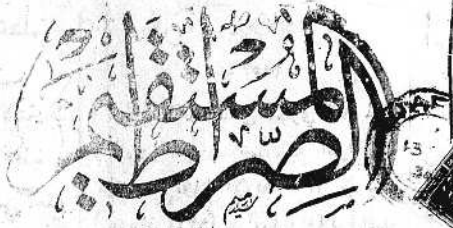 الصراط المستقيم
13